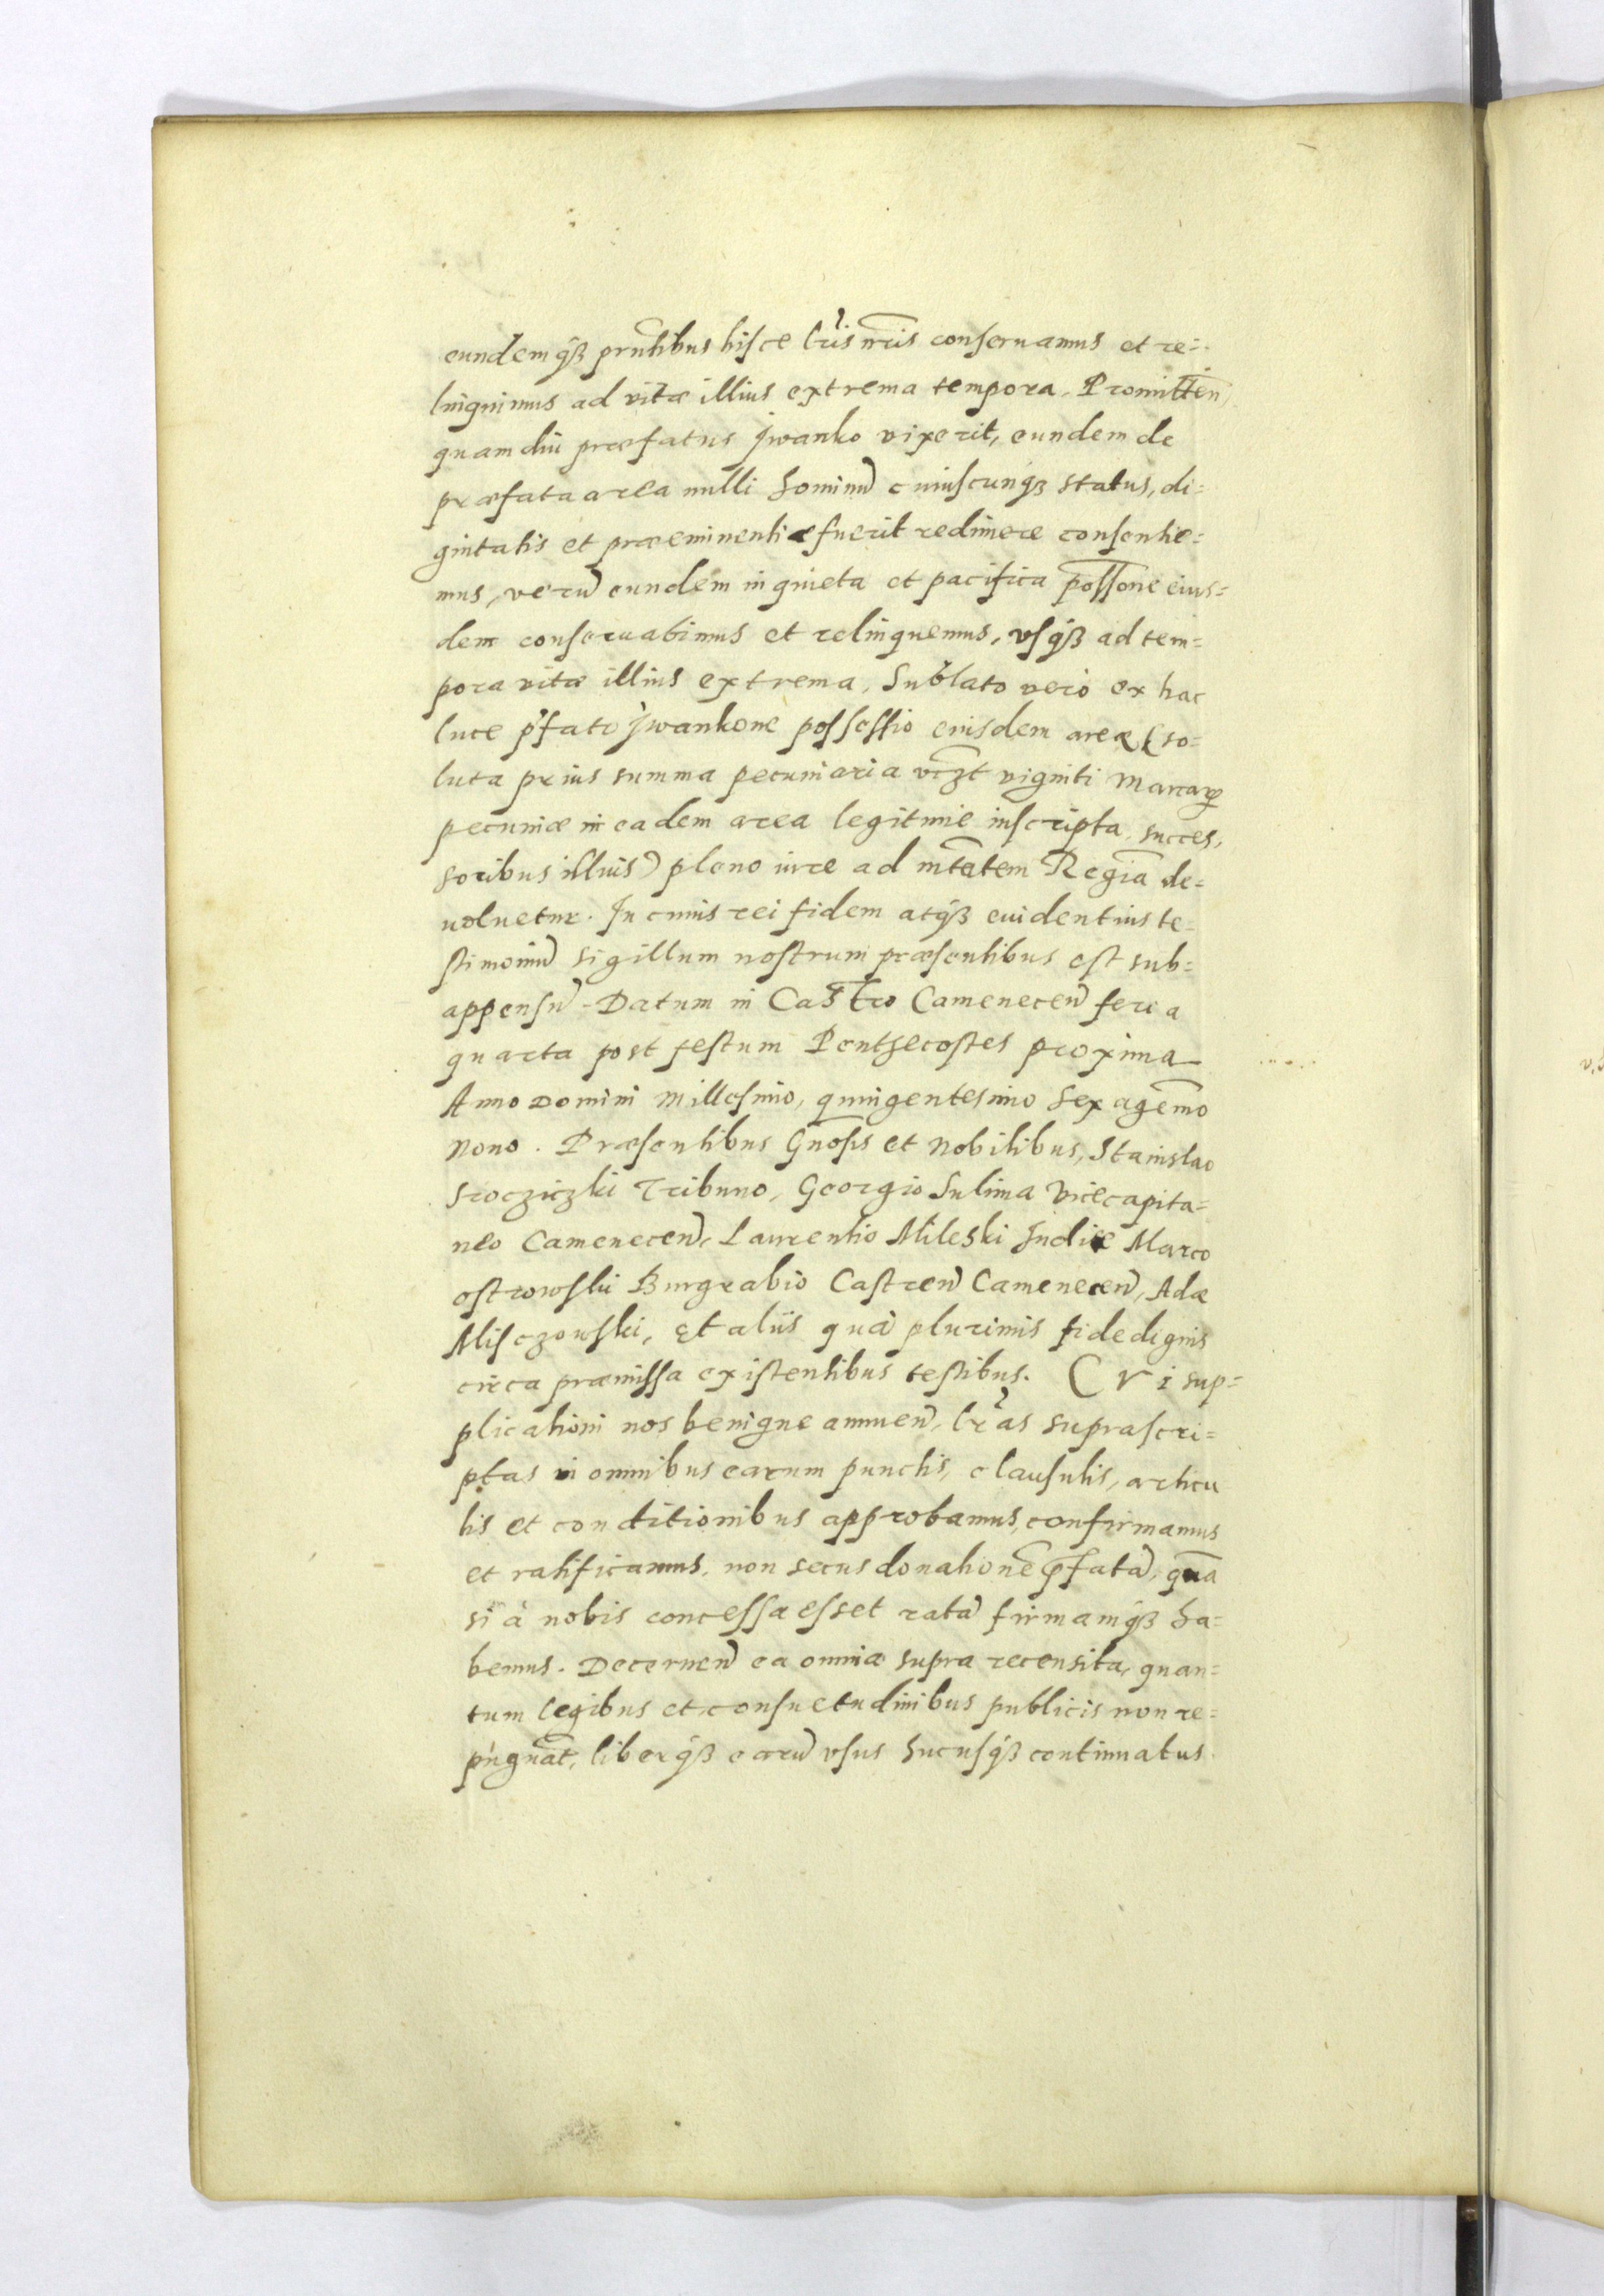 eundemq́ꝫ prñtibus hisce lr̃is nr̃is conseruamus et re=
linquimus ad vitæ illius extrema tempora. Promitteñ,
quamdiu præfatus Jwanko vixerit, eundem de
præfata area nulli hominũ cuiuscunq́ꝫ status, di=
gnitatis et præeminentiæ fuerit redimere consentie=
mus, verũ eundem in quieta et pacifica possone eius=
dem conseruabimus et relinquemus, vsq́ꝫ ad tem=
pora vitæ illius extrema, Sublato vero ex hac
luce p̃fato Jwankone possessio eiusdem areæ (so=
luta prius summa pecuniaria vcꝫt viginti Marcarꝝ
pecuniæ in eadem area legitime inscripta, succes,
soribus illius) pleno iure ad mtatem Regiã de=
uoluetur. In cuius rei fidem atq́ꝫ euidentius te=
stimoniũ sigillum nostrum præsentibus est sub=
appensũ. Datum in Castro Cameneceñ feria
quarta post festum Penthecostes proxima
Anno Domini Millesimo, quingentesimo Sexagemo
Nono. Præsentibus Gnosis et Nobilibus, Stanislao
Srocziczki Tribuno, Georgio Sulima Vicecapita=
neo Cameneceñ, Laurentio Mileski Iudice Marco
ostrowski Burgrabio Castreñ Cameneceñ, Adã
Misczowski, Et aliis quã plurimis fidedignis
circa præmissa existentibus testibus. CVi sup=
plicationi nos benigne annueñ, lr̃as suprascri=
ptas in omnibus earum punctis, clausulis, articu
lis et conditionibus approbamus, confirmamus
et ratificamus, non secus donationẽ p̃fatã, quã
si à nobis concessa esset ratã firmamq́ꝫ ha=
bemus. Decerneñ ea omnia supra recensita, quan=
tum legibus et consuetudinibus publicis non re=
pugnãt, liberq́ꝫ earũ vsus hucusq́ꝫ continuatus